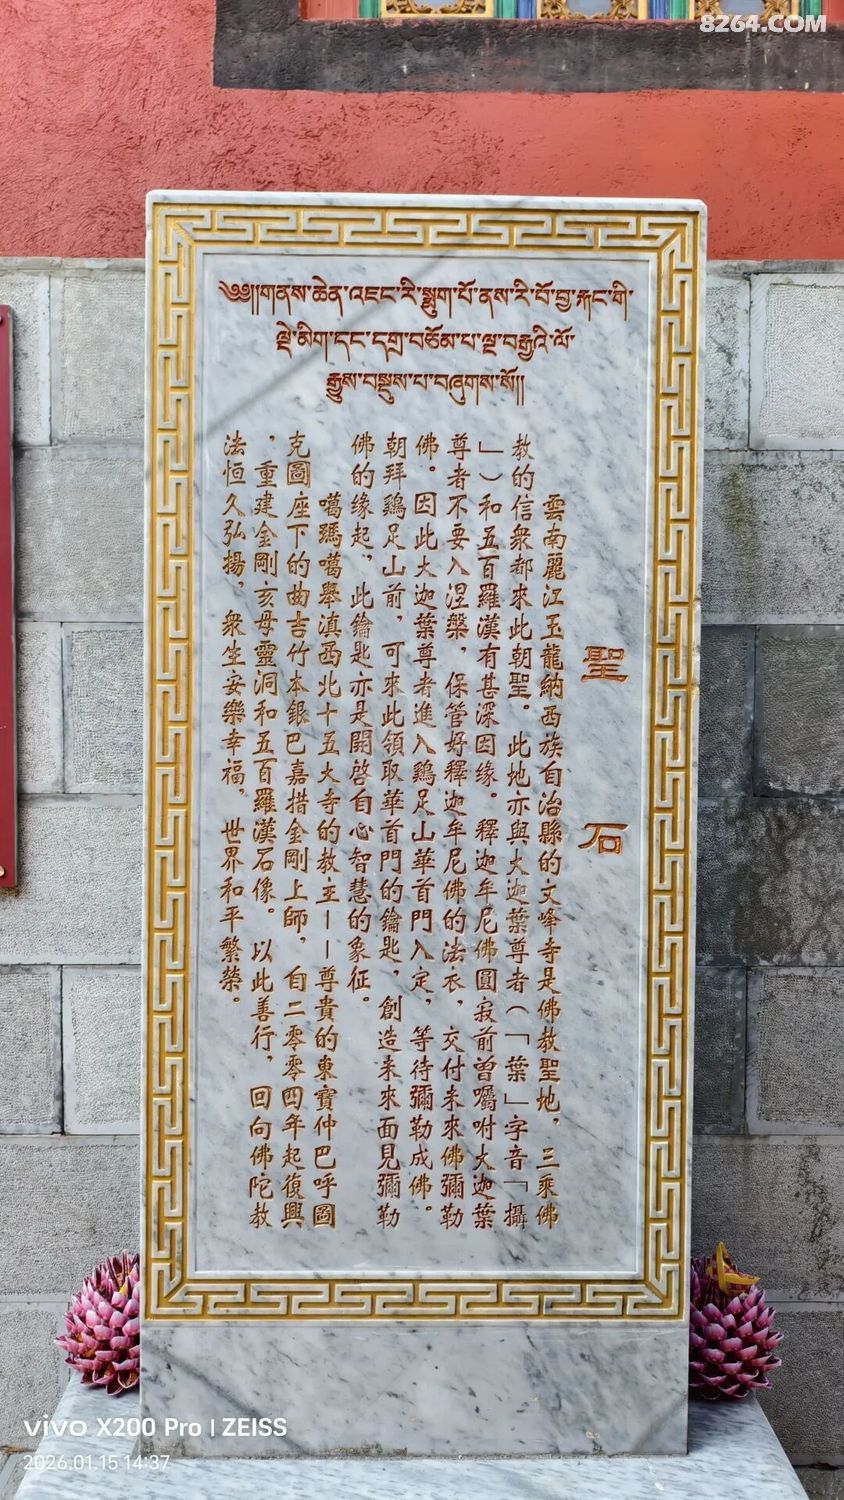 8264.COM
༄༅།།གནས་ཆེན་འཇང་རི་སྨུག་པོ་ནས་རི་བོ་བྱ་རྐང་གི་
ལྡེ་མིག་དང་དགྲ་བཅོམ་པ་ལྔ་བརྒྱའི་ལོ་
རྒྱུས་བསྡུས་པ་བཞུགས་སོ།།
聖石
雲南麗江玉龍納西族自治縣的文峰寺是佛教聖地，三乘佛
教的信衆都來此朝聖。此地亦與大迦葉尊者（「葉」字音「攝
」）和五百羅漢有甚深因缘。釋迦牟尼佛圓寂前曾囑咐大迦葉
尊者不要入涅槃，保管好釋迦牟尼佛的法衣，交付未來佛彌勒
佛。因此大迦葉尊者進入鷄足山華首門入定，等待彌勒成佛。
朝拜鷄足山前，可來此領取華首門的鑰匙，創造未來面見彌勒
佛的缘起，此鑰匙亦是開啓自心智慧的象征。
噶瑪噶舉滇西北十五大寺的教主——尊貴的東寶仲巴呼圖
克圖座下的曲吉竹本銀巴嘉措金剛上師，自二零零四年起復興
，重建金剛亥母靈洞和五百羅漢石像。以此善行，回向佛陀教
法恒久弘揚，衆生安樂幸福，世界和平繁榮。
vivo X200 Pro | ZEISS
2026.01.15 14:37